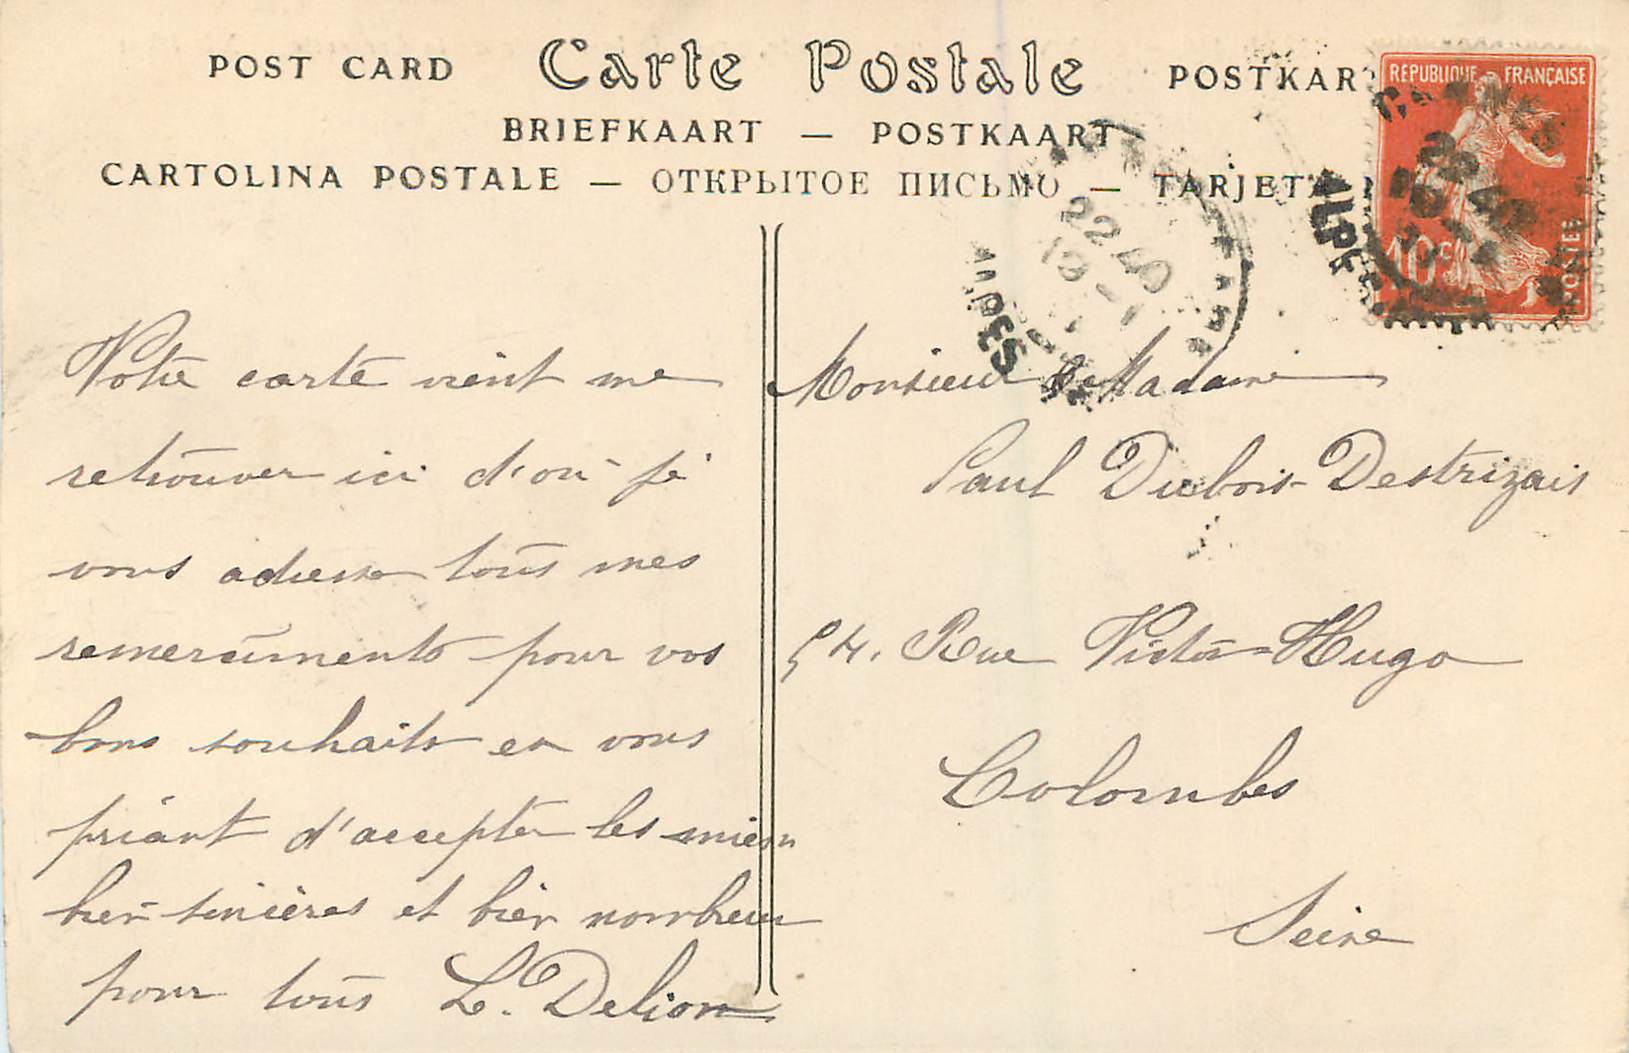 POST CARD Carte Postale POSTKAR
BRIEFKAART — POSTKAART
CARTOLINA POSTALE — ОТКРЫТОЕ ПИСЬМО — TARJETA
REPUBLIQUE FRANÇAISE
10c POSTES
CANNES
22 40
ALPES
22 40
19 - 1
ALPES
Votre carte vient me
retrouver ici d'où je
vous adresse tous mes
remerciements pour vos
bons souhaits en vous
priant d'accepter les miens
bien sincères et bien nombreux
pour tous L. Delion
Monsieur & Madame
Paul Dubois-Destrizais
54. Rue Victor-Hugo
Colombes
Seine